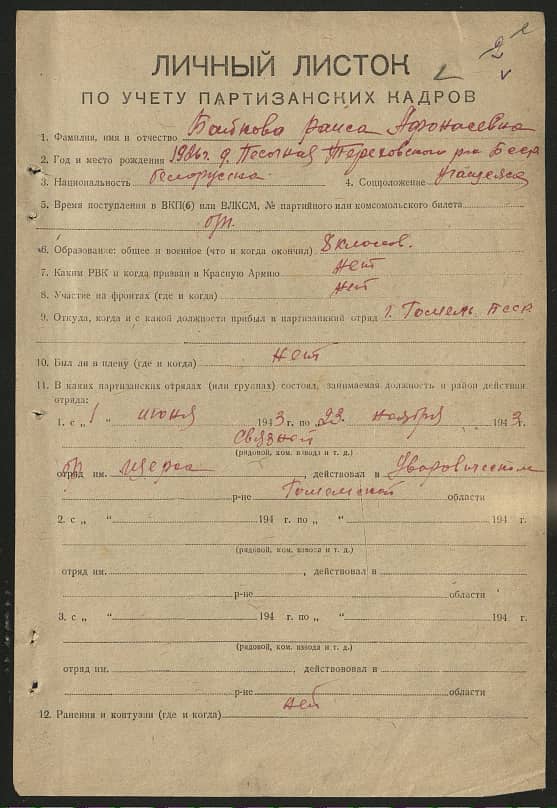 2
ЛИЧНЫЙ ЛИСТОК
ПО УЧЕТУ ПАРТИЗАНСКИХ КАДРОВ
1. Фамилия, имя и отчество Бабкова Раиса Афонасевна
2. Год и место рождения 1926 г. д. Песочная Тереховского р-н БССР
3. Национальность белоруска 4. Соцположение учащаяся
5. Время поступления в ВКП(б) или ВЛКСМ, № партийного или комсомольского билета
6. Образование: общее и военное (что и когда окончил) 8 классов.
7. Каким РВК и когда призван в Красную Армию нет
8. Участие на фронтах (где и когда) нет
9. Откуда, когда и с какой должности прибыл в партизанский отряд г. Гомель БССР
10. Был ли в плену (где и когда) нет
11. В каких партизанских отрядах (или группах) состоял, занимаемая должность и район действия
отряда:
1. с „ 1 “ июня 1943 г. по „ 23 “ ноября 1943 г.
связной
(рядовой, ком. взвода и т. д.)
отряд им. Щерса, действовал в Уваровическом
р-не Гомельской области
2. с „ “ 194 г. по „ “ 194 г.
(рядовой, ком. взвода и т. д.)
отряд им. , действовал в
р-не области
3. с „ “ 194 г. по „ “ 194 г.
(рядовой, ком. взвода и т. д.)
отряд им. , действововал в
р-не области
12. Ранения и контузии (где и когда) нет